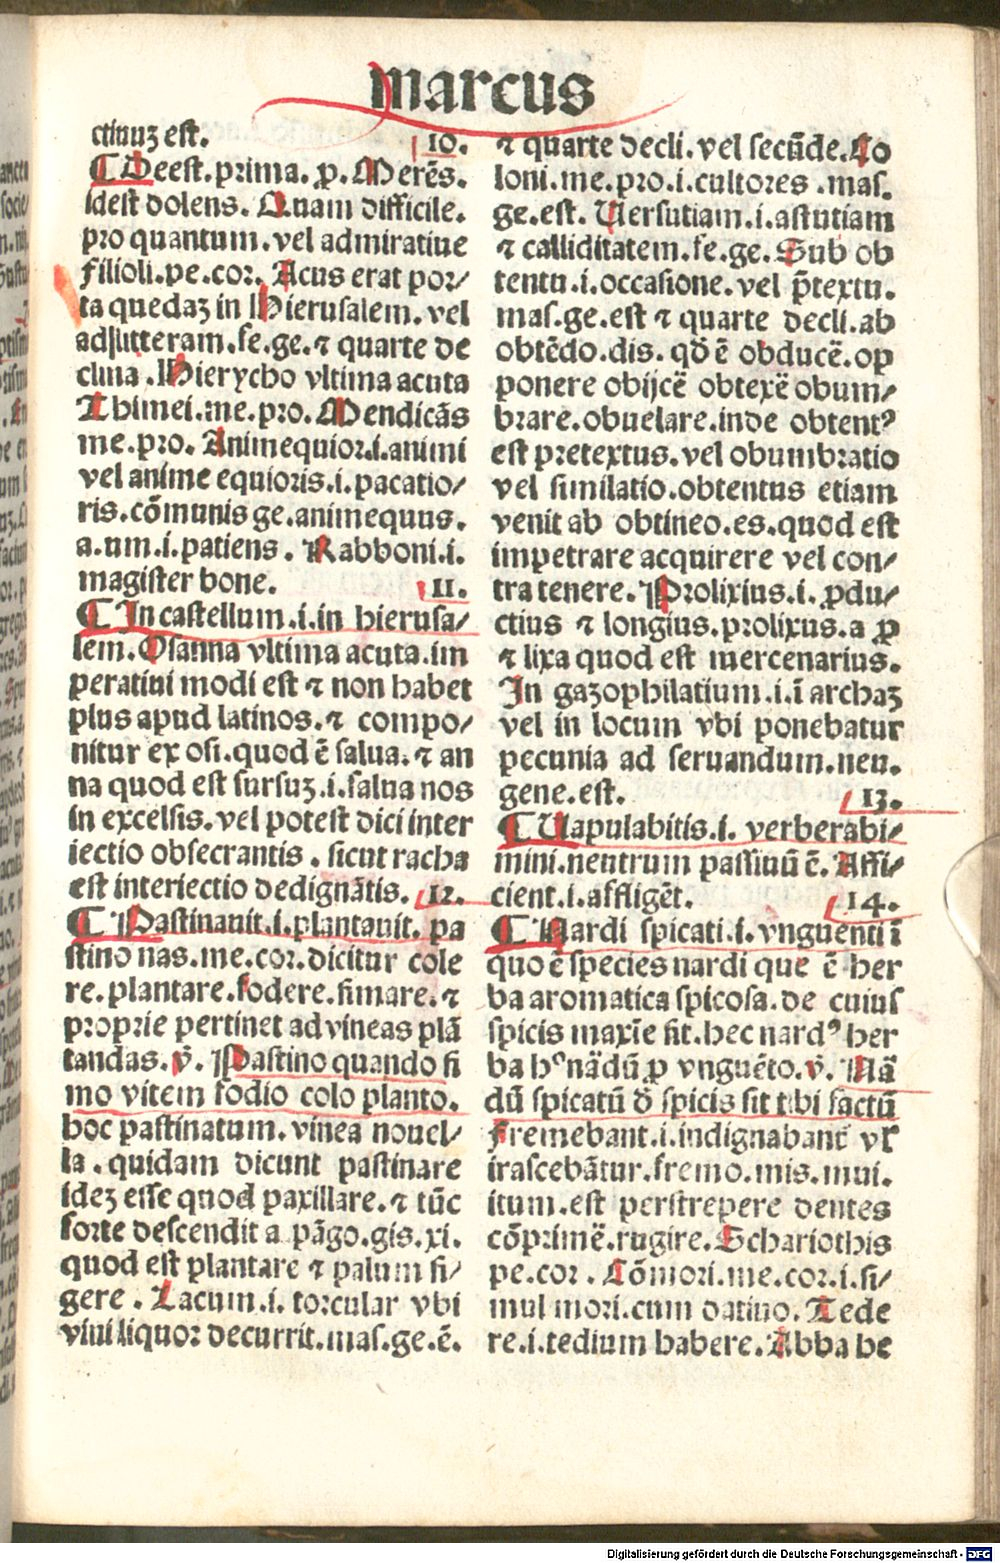 marcus
ctiuuꝫ est. 10.
¶ Deest.prima.ꝓ.Merēs.
idest dolens. Quam difficile.
pro quantum.vel admiratiue
filioli.pe.cor. Acus erat por/
ta quedaꝫ in Hierusalem.vel
ad litteram.fe.ge.⁊ quarte de
clina.Hierycho vltima acuta
Thimei.me.pro.Mendicās
me.pro. Animequior.i.animi
vel anime equioris.i.pacatio/
ris.cōmunis ge.animequus.
a.um.i.patiens. Rabboni.i.
magister bone. 11.
¶ In castellum.i.in hierusa/
lem.Osanna vltima acuta.im
peratiui modi est ⁊ non habet
plus apud latinos.⁊ compo/
nitur ex osi.quod ē salua.⁊ an
na quod est sursuꝫ.i.salua nos
in excelsis.vel potest dici inter
iectio obsecrantis. sicut racha
est interiectio dedignātis. 12.
¶ Pastinauit.i.plantauit. pa
stino nas.me.cor.dicitur cole
re.plantare.fodere.fimare.⁊
proprie pertinet ad vineas plā
tandas.v̄. Pastino quando fi
mo vitem fodio colo planto.
hoc pastinatum.vinea nouel/
la.quidam dicunt pastinare
ideꝫ esse quod paxillare.⁊ tūc
forte descendit a pāgo.gis.xi.
quod est plantare ⁊ palum fi/
gere. Lacum.i. torcular vbi
vini liquor decurrit.mas.ge.ē.
⁊ quarte decli.vel secūde.Co
loni.me.pro.i.cultores.mas.
ge.est. Versutiam.i.astutiam
⁊ calliditatem.fe.ge.Sub ob
tentu.i.occasione.vel p̄textu.
mas.ge.est ⁊ quarte decli.ab
obtēdo.dis. qd̄ ē obducē.op
ponere obijcē obtexē obum/
brare.obuelare.inde obtentꝰ
est pretextus.vel obumbratio
vel similatio.obtentus etiam
venit ab obtineo.es.quod est
impetrare acquirere vel con/
tra tenere. Prolixius.i. ꝓdu/
ctius ⁊ longius.prolixus.a ꝓ
⁊ lixa quod est mercenarius.
In gazophilatium.i.ī archaꝫ
vel in locum vbi ponebatur
pecunia ad seruandum.neu.
gene.est. 13.
¶ Vapulabitis.i. verberabi/
mini.neutrum passiuū ē. Affi/
cient.i.affligēt. 14.
¶ Nardi spicati.i.vnguenti ī
quo ē species nardi que ē her
ba aromatica spicosa.de cuius
spicis maxīe fit.hec nardꝰ her
ba hꝰ nādū ꝓ vnguēto.v̄. Nā
dū spicatū d̄ spicis sit tibi factū
Fremebant.i.indignabant vl̄
irascebātur.fremo.mis.mui.
itum.est perstrepere dentes
cōprimē.rugire.Schariothis
pe.cor. Cōmori.me.cor.i.si/
mul mori.cum datiuo. Tede
re.i.tedium habere.Abba he
Digitalisierung gefördert durch die Deutsche Forschungsgemeinschaft - DFG